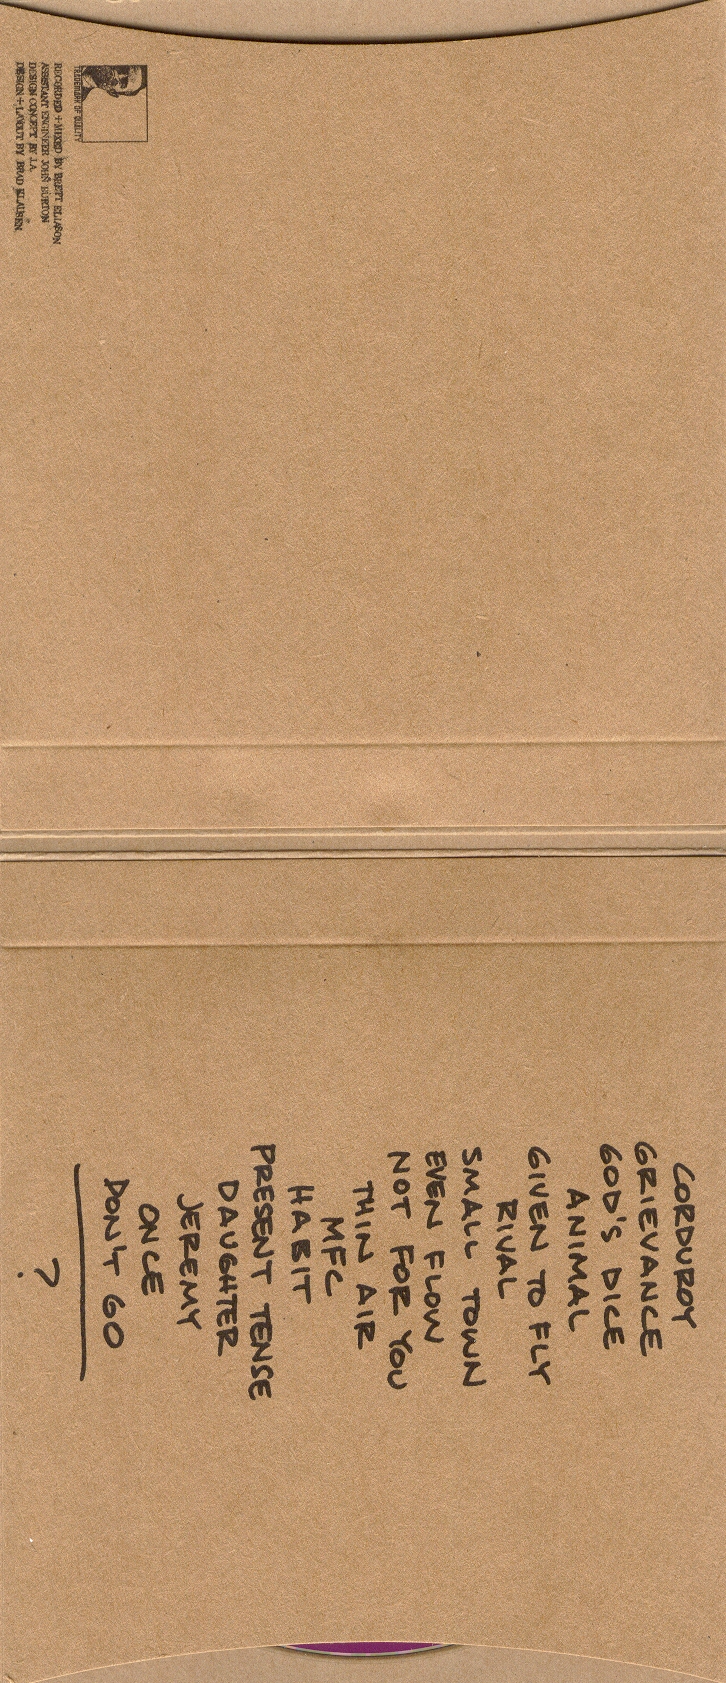 TRADEMARK OF QUALITY
RECORDED + MIXED BY BRETT ELIASON
ASSISTANT ENGINEER JOHN BURTON
DESIGN CONCEPT BY J.A.
DESIGN + LAYOUT BY BRAD KLAUSEN
CORDUROY
GRIEVANCE
GOD'S DICE
ANIMAL
GIVEN TO FLY
RIVAL
SMALL TOWN
EVEN FLOW
NOT FOR YOU
THIN AIR
MFC
HABIT
PRESENT TENSE
DAUGHTER
JEREMY
ONCE
DON'T GO
?